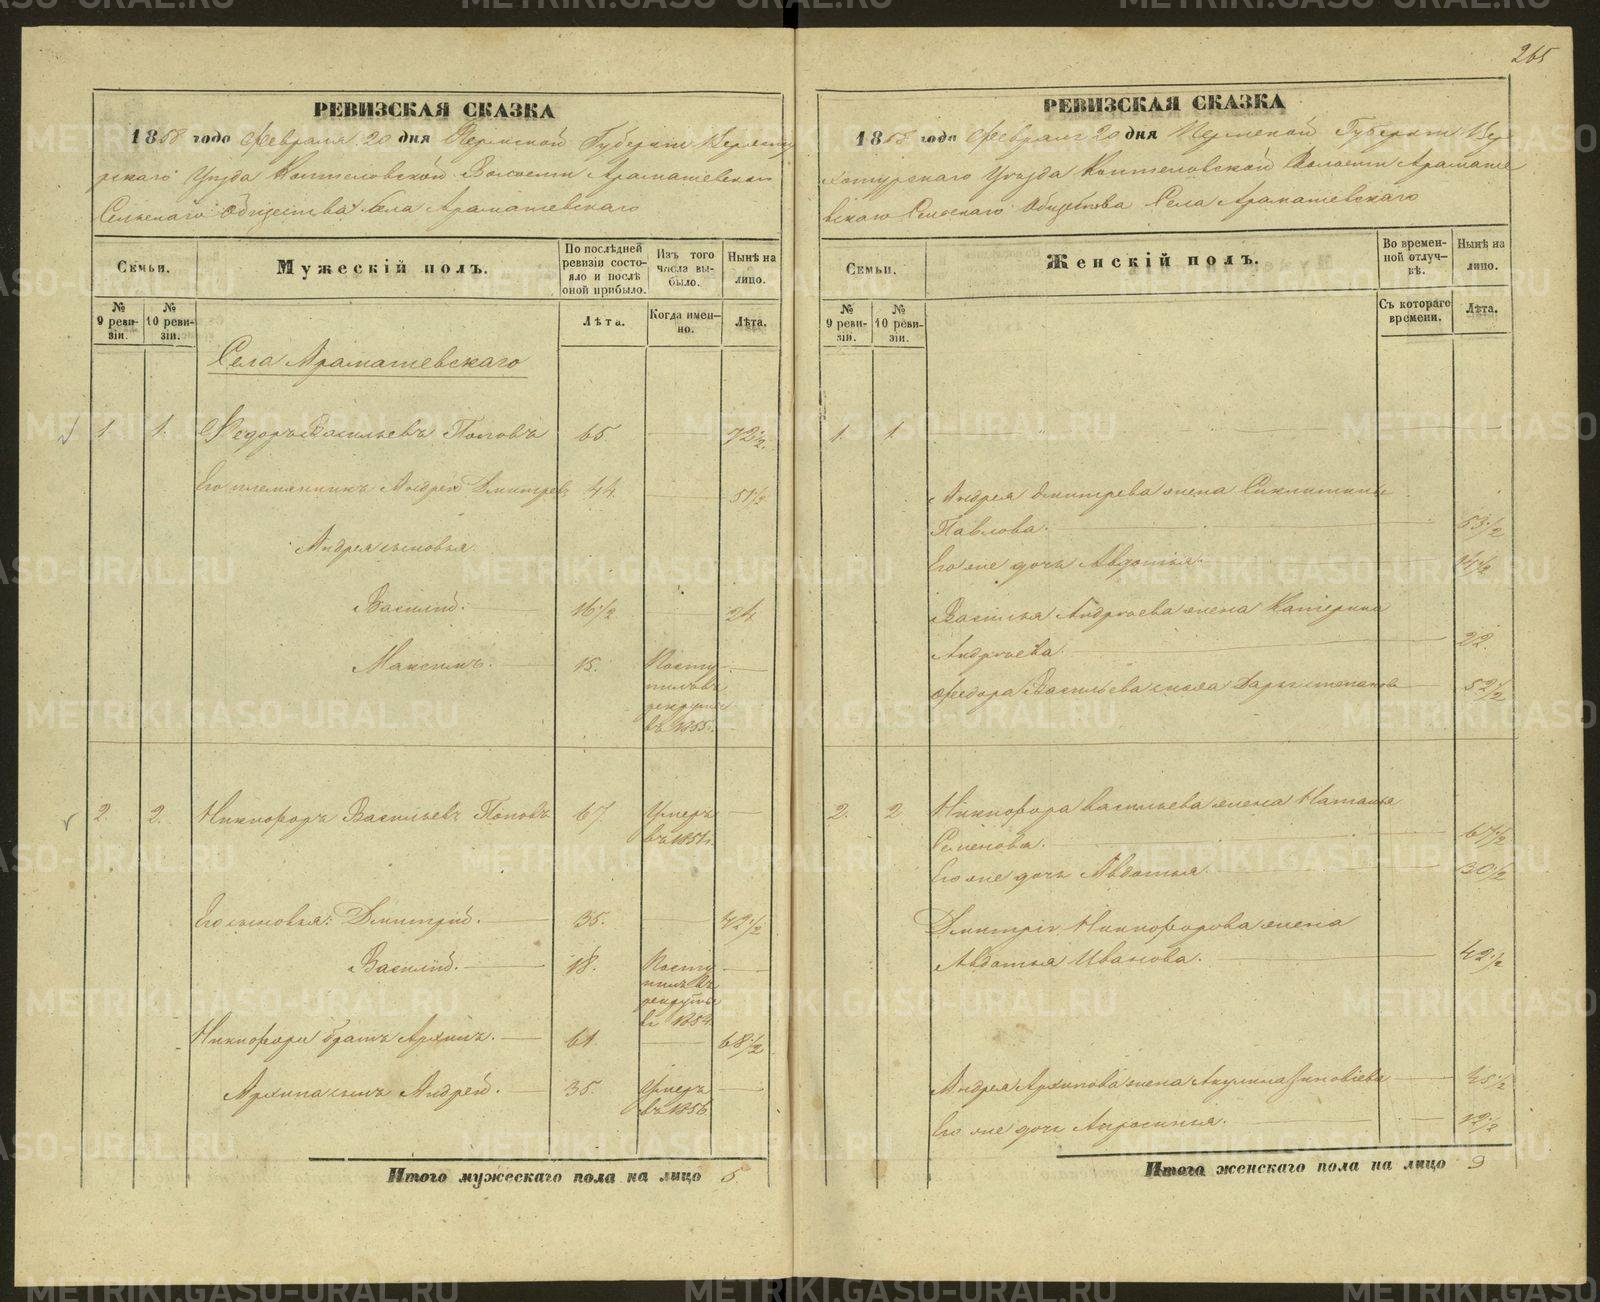 265
РЕВИЗСКАЯ СКАЗКА
1858 года Февраля 20 дня Пермской Губернiи Верхоту
рскаго Уѣзда Коптеловской Волости Арамашевскаго
Сельскаго Общества Села Арамашевскаго
Семьи.
Мужескiй полъ.
По послѣдней ревизiи состояло и послѣ оной прибыло.
Изъ того числа выбыло.
Нынѣ на лицо.
№ 9 ревизiи.
№ 10 ревизiи.
Лѣта.
Когда именно.
Лѣта.
Села Арамашевскаго
1. 1. Федоръ Васильевъ Поповъ 65 72 1/2.
Его племянникъ Андрей Дмитрев 44. 51 1/2
Андрея сыновья
Василий. 16 1/2 24
Максимъ. 15. Посту
пилъ въ
рекруты
въ 1855.
2. 2. Никифоръ Васильевъ Поповъ 67 Умеръ
въ 1851.
Его сыновья: Дмитрий. 35. 42 1/2
Василий. 18. Посту
пилъ въ
рекруты
въ 1854
Никифора братъ Архипъ. 61. 68 1/2
Архипа сынъ Андрей. 35. Умеръ
въ 1856
Итого мужескаго пола на лицо 5.
РЕВИЗСКАЯ СКАЗКА
1858 года Февраля 20 дня Пермской Губернiи Вер
хотурскаго Уѣзда Коптеловской Волости Арамаше
вскаго Сельскаго Общества Села Арамашевскаго
Семьи.
Женскiй полъ.
Во временной отлучкѣ.
Нынѣ на лицо.
№ 9 ревизiи.
№ 10 ревизiи.
Съ котораго времени.
Лѣта.
1. 1.
Андрея Дмитрева жена
Павлова. 53 1/2
Его же дочь Авдотья. 14 1/2
Василья Андреева жена Катерина
Андреева. 22.
Федора Васильева Дарья Степанова 52 1/2
2. 2 Никифора Васильева жена Наталья
Семенова. 67 1/2
Его же дочь Авдотья 30 1/2
Дмитрiя Никифорова жена
Авдотья Иванова. 42 1/2
Андрея Архипова жена Акулина Зиновiева 45 1/2
Его же дочь Апросинья. 12 1/2
Итого женскаго пола на лицо 9
METRIKI.GASO-URAL.RU